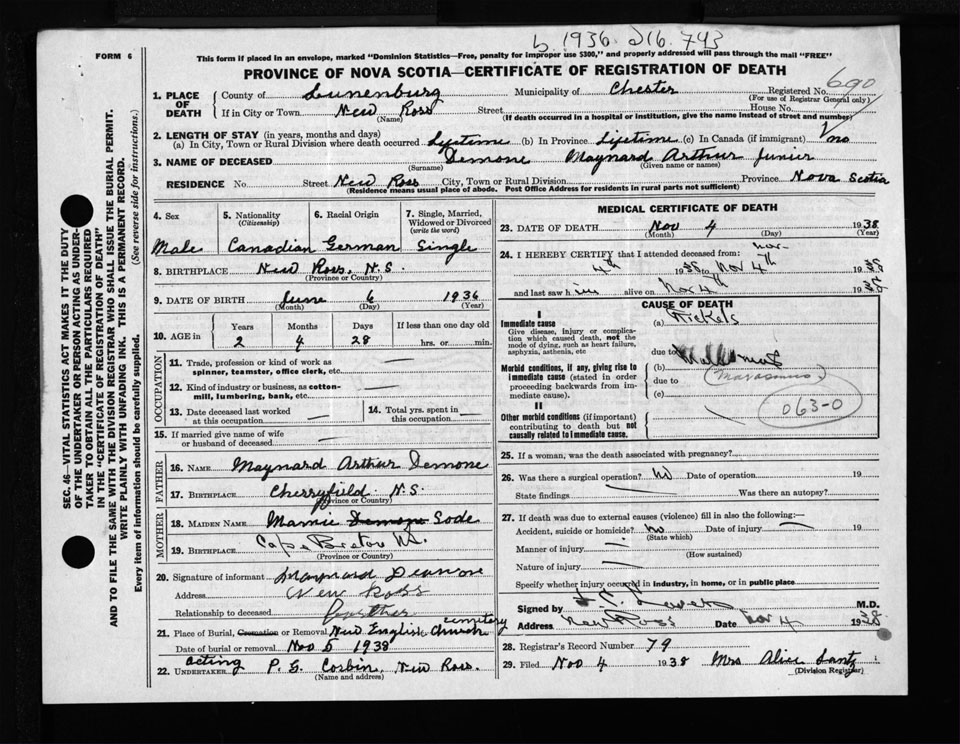 b. 1936 216.743
FORM 6
This form if placed in an envelope, marked "Dominion Statistics—Free, penalty for improper use $300," and properly addressed will pass through the mail "FREE"
PROVINCE OF NOVA SCOTIA—CERTIFICATE OF REGISTRATION OF DEATH
690
1. PLACE OF DEATH
County of Lunenburg Municipality of Chester Registered No.
(For use of Registrar General only)
If in City or Town New Ross Street House No.
(Name) (If death occurred in a hospital or institution, give the name instead of street and number)
2. LENGTH OF STAY (in years, months and days)
(a) In City, Town or Rural Division where death occurred Lifetime (b) In Province Lifetime (c) In Canada (if immigrant) no
3. NAME OF DECEASED Demone Maynard Arthur Junior
(Surname) (Given name or names)
RESIDENCE No. Street New Ross City, Town or Rural Division Province Nova Scotia
(Residence means usual place of abode. Post Office Address for residents in rural parts not sufficient)
4. Sex Male
5. Nationality (Citizenship) Canadian
6. Racial Origin German
7. Single, Married, Widowed or Divorced (write the word) Single
8. BIRTHPLACE New Ross, N.S.
(Province or Country)
9. DATE OF BIRTH June 6 1936
(Month) (Day) (Year)
10. AGE in Years Months Days If less than one day old
2 4 28 hrs. or min.
OCCUPATION
11. Trade, profession or kind of work as spinner, teamster, office clerk, etc. —
12. Kind of industry or business, as cotton-mill, lumbering, bank, etc. —
13. Date deceased last worked at this occupation —
14. Total yrs. spent in this occupation —
15. If married give name of wife or husband of deceased —
FATHER
16. NAME Maynard Arthur Demone
17. BIRTHPLACE Cherryfield N.S.
(Province or Country)
MOTHER
18. MAIDEN NAME Mamie Demone Sode
19. BIRTHPLACE Cape Breton N.S.
(Province or Country)
20. Signature of informant Maynard Demone
Address New Ross
Relationship to deceased father
21. Place of Burial, Cremation or Removal New English Church cemetery
Date of burial or removal Nov 5 1938
acting
22. UNDERTAKER P. G. Corbin, New Ross.
(Name and address)
MEDICAL CERTIFICATE OF DEATH
23. DATE OF DEATH Nov 4 1938
(Month) (Day) (Year)
24. I HEREBY CERTIFY that I attended deceased from: Nov-
4th 1938 to Nov 4th 1938
and last saw him alive on Nov 4th 1938
CAUSE OF DEATH
I
Immediate cause (a) Rickets
Give disease, injury or complication which caused death, not the mode of dying, such as heart failure, asphyxia, asthenia, etc
due to
Morbid conditions, if any, giving rise to immediate cause (stated in order proceeding backwards from immediate cause).
(b)
due to (Marasmus)
(c)
063-0
II
Other morbid conditions (if important) contributing to death but not causally related to immediate cause.
25. If a woman, was the death associated with pregnancy?
26. Was there a surgical operation? No Date of operation 19
State findings Was there an autopsy?
27. If death was due to external causes (violence) fill in also the following:—
Accident, suicide or homicide? no Date of injury — 19
(State which)
Manner of injury —
(How sustained)
Nature of injury —
Specify whether injury occurred in industry, in home, or in public place
Signed by M.D.
Address New Ross Date Nov 4 1938
28. Registrar's Record Number 79
29. Filed Nov 4 1938 Mrs Alice Lantz
(Division Registrar)
SEC. 46—VITAL STATISTICS ACT MAKES IT THE DUTY
OF THE UNDERTAKER OR PERSON ACTING AS UNDER-
TAKER TO OBTAIN ALL THE PARTICULARS REQUIRED
IN THE "CERTIFICATE OF REGISTRATION OF DEATH"
AND TO FILE THE SAME WITH THE DIVISION REGISTRAR WHO SHALL ISSUE THE BURIAL PERMIT.
WRITE PLAINLY WITH UNFADING INK. THIS IS A PERMANENT RECORD.
Every item of information should be carefully supplied. (See reverse side for instructions.)